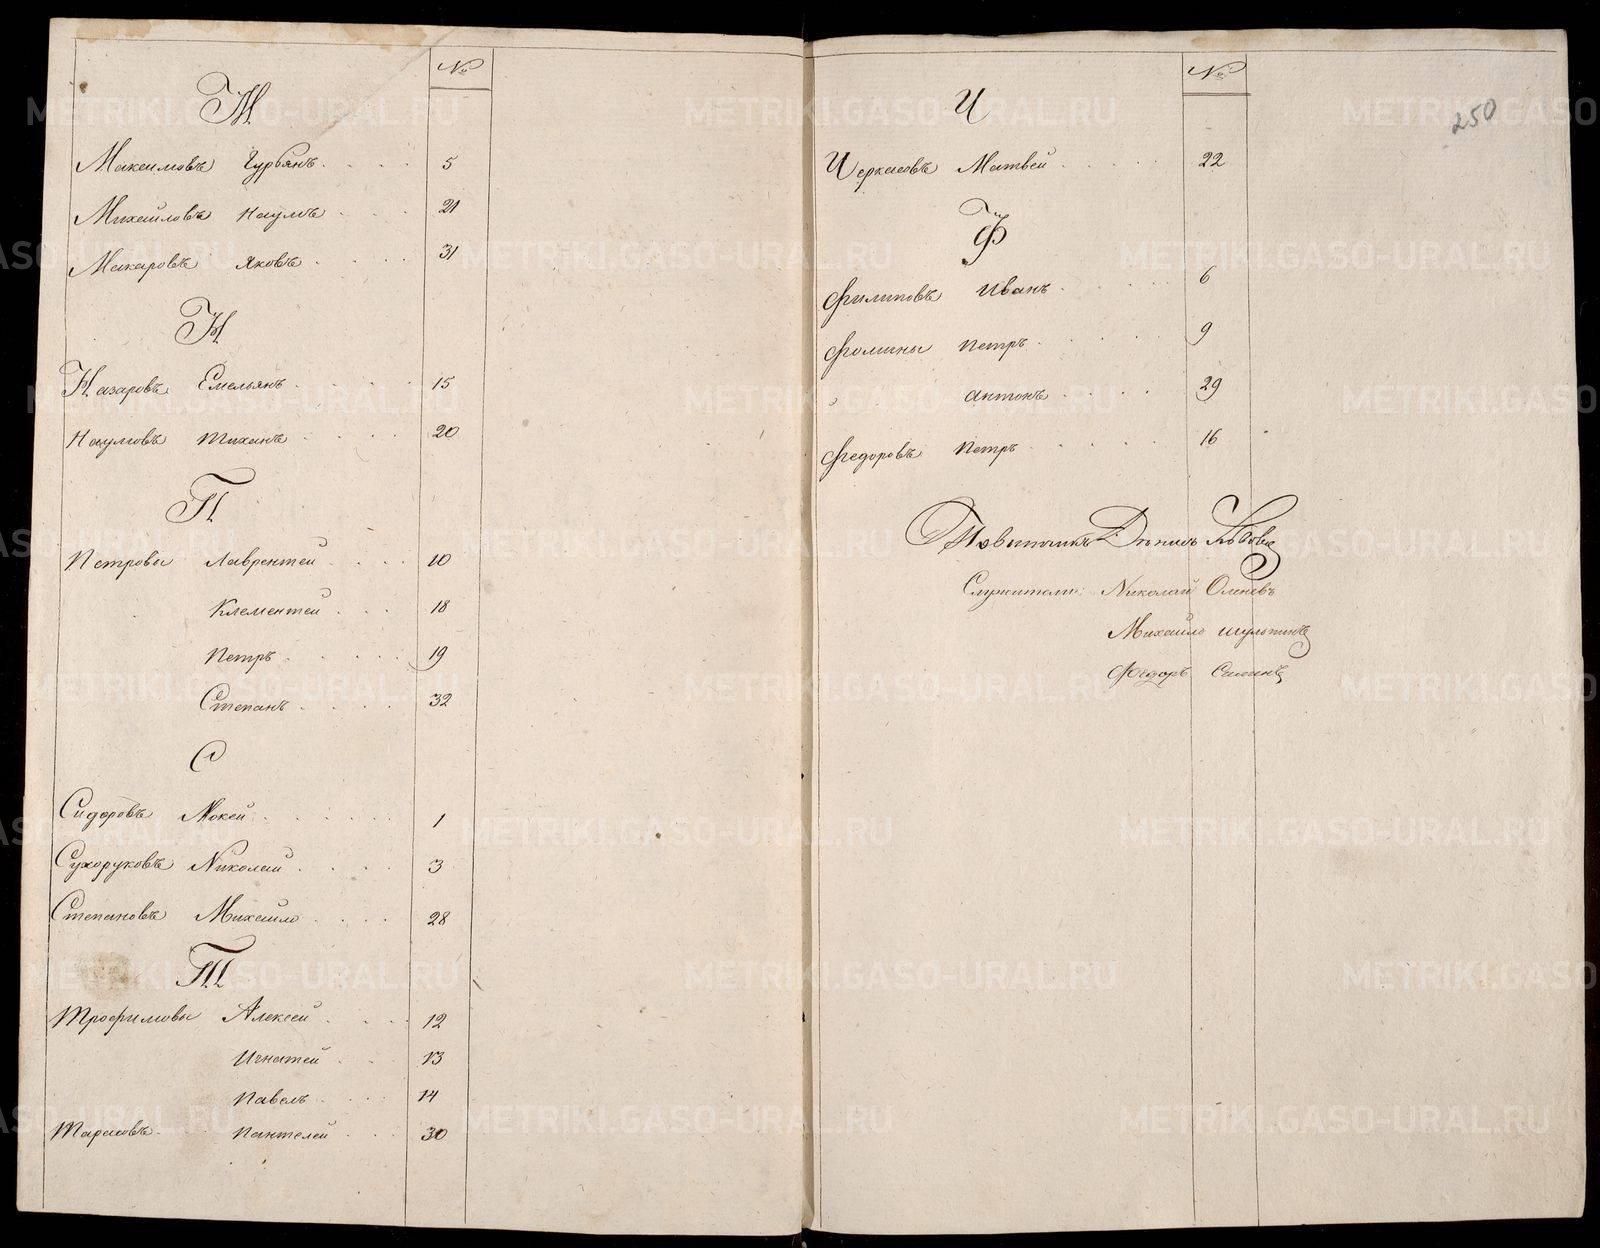 №
М
Максимовъ Гурьянъ 5
Михайловъ Наумъ 21
Макаровъ Яковъ 31
Н
Назаровъ Емельянъ 15
Наумовъ Тиханъ 20
П
Петровы Лаврентей 10
Клементей 18
Петръ 19
Степанъ 32
С
Сидоровъ Мокей 1
Сухоруковъ Николай 3
Степановъ Михайло 28
Т
Трофимовы Алексей 12
Игнатей 13
Павелъ 14
Тарасовъ Пантелей 30
№
250
Ч
Черкасовъ Матвей 22
Ф
Филиповъ Иванъ 6
Фомины Петръ 9
" Антонъ 29
Федоровъ Петръ 16
Повытчикъ
Служители: Николай Оленевъ
Михайло Шульгинъ
Федоръ
METRIKI.GASO-URAL.RU